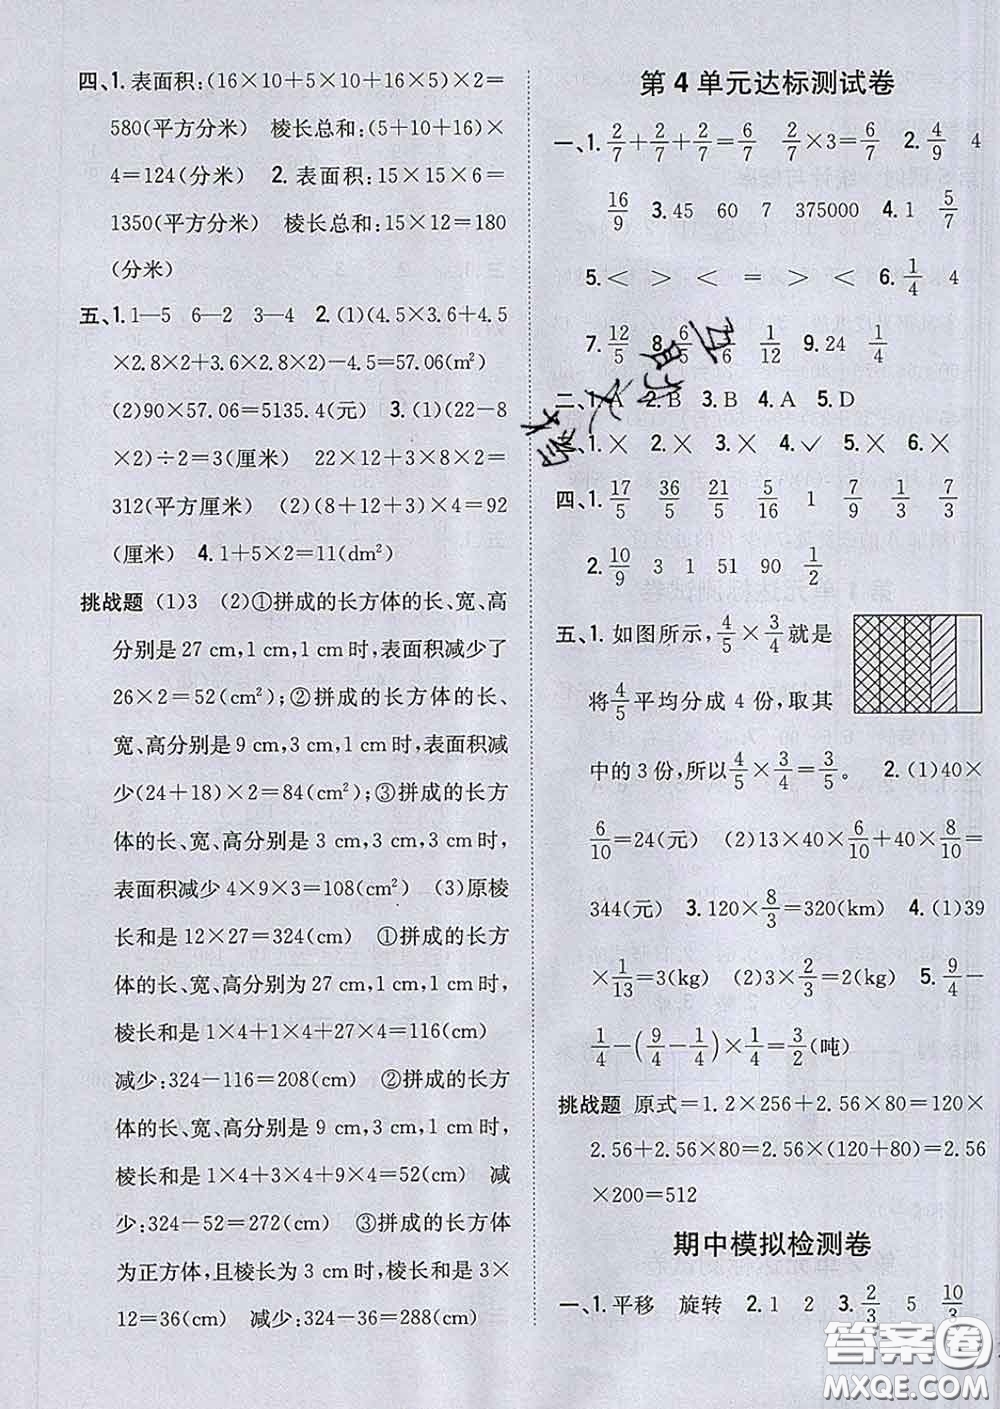 四、1. 表面积:(16×10+5×10+16×5)×2=
580(平方分米) 棱长总和:(5+10+16)×
4=124(分米) 2. 表面积:15×15×6=
1350(平方分米) 棱长总和:15×12=180
(分米)
五、1. 1—5 6—2 3—4 2. (1)(4.5×3.6+4.5
×2.8×2+3.6×2.8×2)-4.5=57.06(m²)
(2)90×57.06=5135.4(元) 3. (1)(22-8
×2)÷2=3(厘米) 22×12+3×8×2=
312(平方厘米) (2)(8+12+3)×4=92
(厘米) 4. 1+5×2=11(dm²)
挑战题 (1)3 (2)①拼成的长方体的长、宽、高
分别是 27 cm,1 cm,1 cm 时,表面积减少了
26×2=52(cm²);②拼成的长方体的长、
宽、高分别是 9 cm,3 cm,1 cm 时,表面积减
少(24+18)×2=84(cm²);③拼成的长方
体的长、宽、高分别是 3 cm,3 cm,3 cm 时,
表面积减少 4×9×3=108(cm²) (3)原棱
长和是 12×27=324(cm) ①拼成的长方
体的长、宽、高分别为 27 cm,1 cm,1 cm 时,
棱长和是 1×4+1×4+27×4=116(cm)
减少:324-116=208(cm) ②拼成的长方
体的长、宽、高分别是 9 cm,3 cm,1 cm 时,
棱长和是 1×4+3×4+9×4=52(cm) 减
少:324-52=272(cm) ③拼成的长方体
为正方体,且棱长为 3 cm 时,棱长和是 3×
12=36(cm) 减少:324-36=288(cm)
第 4 单元达标测试卷
一、1. 2/7+2/7+2/7=6/7 2/7×3=6/7 2. 4/9 4
16/9 3. 45 60 7 375000 4. 1 5/7
5. < > < = > < 6. 1/4 4
7. 12/5 8. 6/5 1/12 9. 24 1/4
二、1. A 2. B 3. B 4. A 5. D
1. × 2. × 3. × 4. ✓ 5. × 6. ×
四、1. 17/5 36/5 21/5 5/16 1 7/9 1/3 7/3
2. 10/9 3 1 51 90 1/2
五、1. 如图所示,4/5×3/4就是
将4/5平均分成 4 份,取其
中的 3 份,所以4/5×3/4=3/5。 2. (1)40×
6/10=24(元) (2)13×40×6/10+40×8/10=
344(元) 3. 120×8/3=320(km) 4. (1)39
×1/13=3(kg) (2)3×2/3=2(kg) 5. 9/4-
1/4-(9/4-1/4)×1/4=3/2(吨)
挑战题 原式=1.2×256+2.56×80=120×
2.56+2.56×80=2.56×(120+80)=2.56
×200=512
期中模拟检测卷
一、1. 平移 旋转 2. 1 2 3. 2/3 5 10/3
答案圈
MXQE.COM